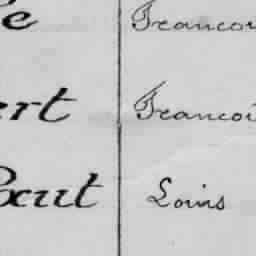 e Francoi
ert Francoi
aut Louis